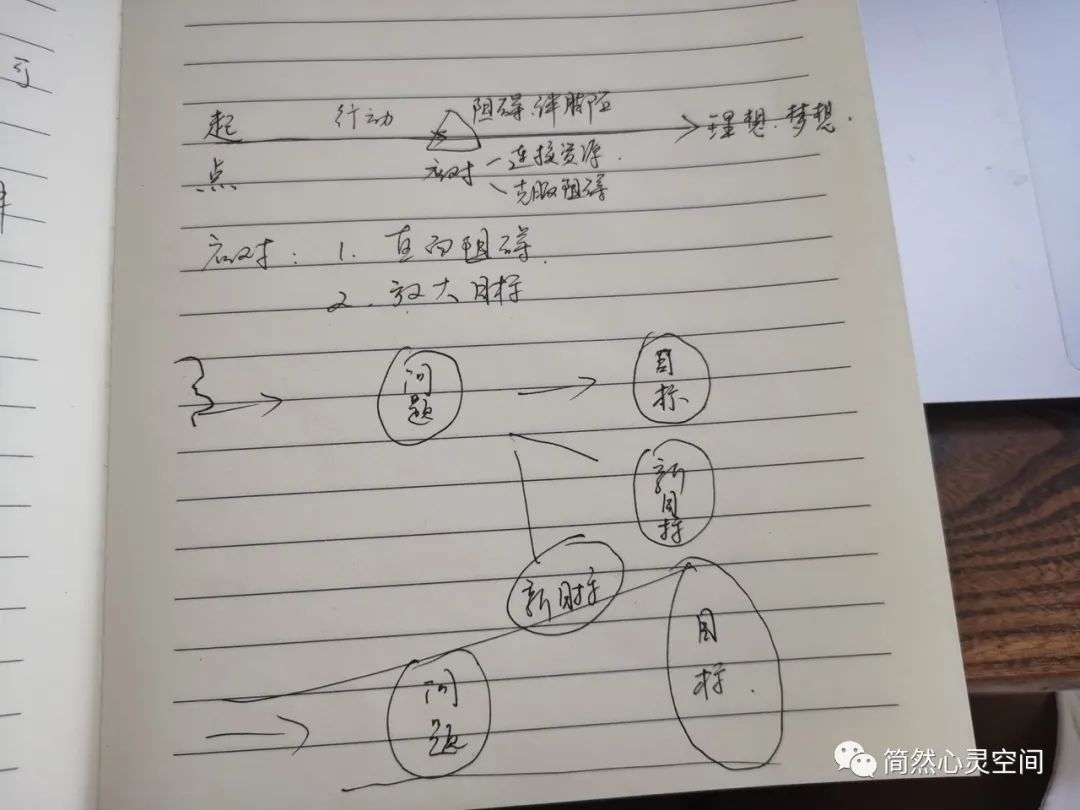 可
起点 行动 阻碍.绊脚石 理想.梦想.
应对 - 连接资源.
、克服阻碍
应对: 1. 直面阻碍.
2. 放大目标
问题 目标
新目标
新目标
问题 目标.
简然心灵空间